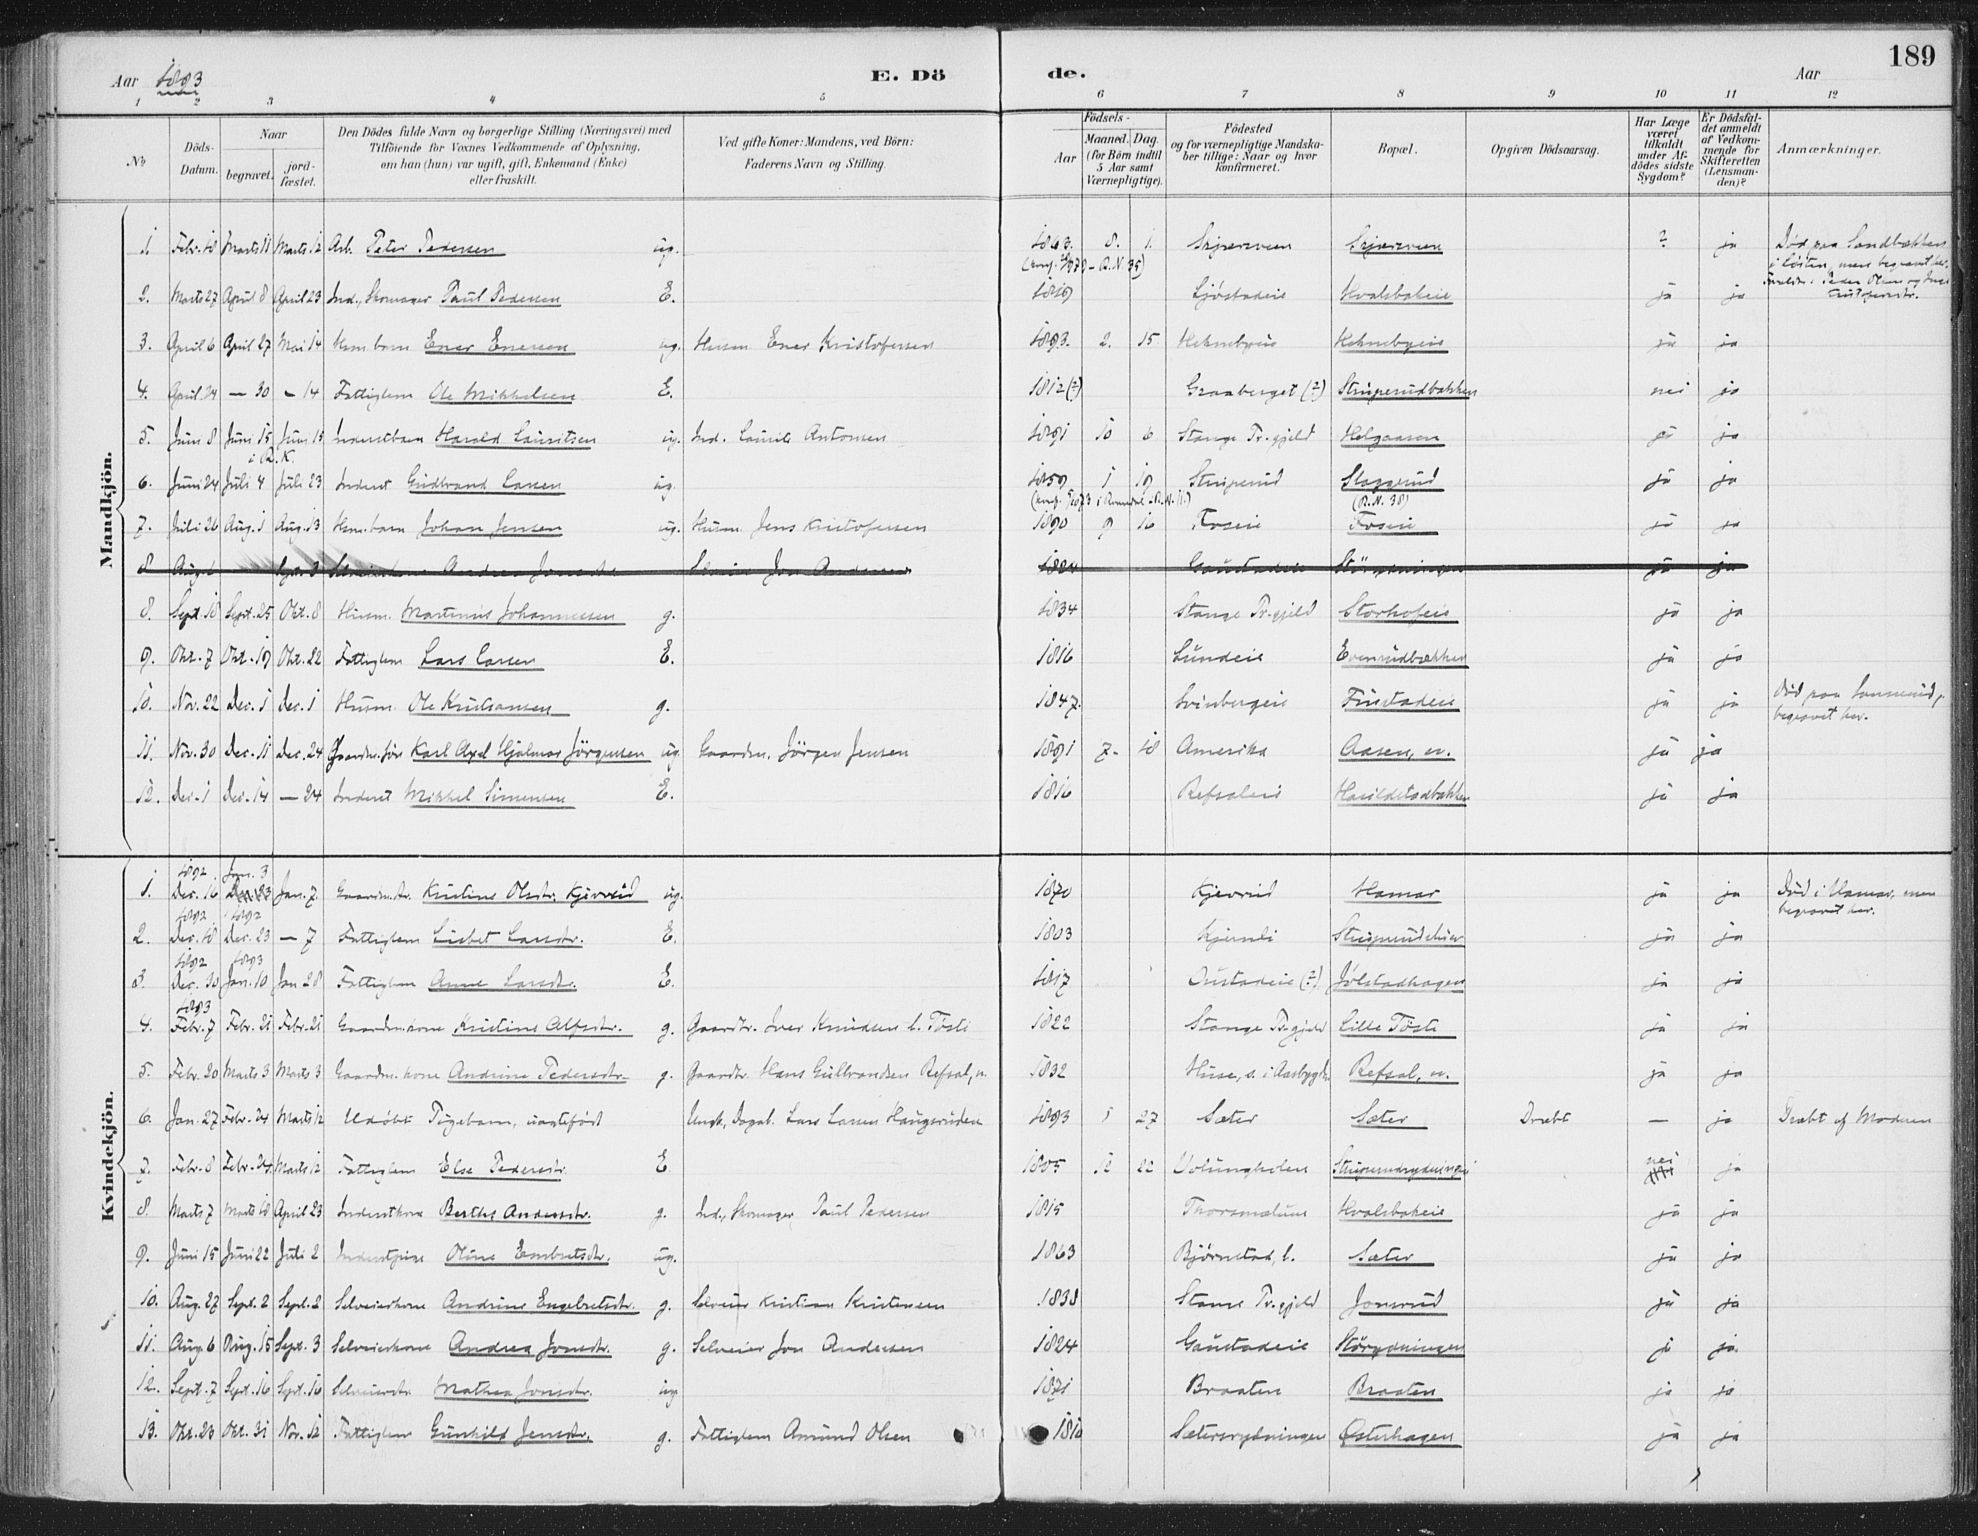 189
Aar 1893 E. Dö de. Aar
1 2 3 4 5 6 7 8 9 10 11 12
No
Döds-Datum.
Naar
begravet.
jord-fæstet.
Den Dödes fulde Navn og borgerlige Stilling (Næringsvei) med
Tilföiende for Voxnes Vedkommende af Oplysning,
om han (hun) var ugift, gift, Enkemand (Enke)
eller fraskilt.
Ved gifte Koner: Mandens, ved Börn:
Faderens Navn og Stilling.
Födsels-
Aar
Maaned. Dag.
(for Börn indtil
5 Aar samt
Værnepligtige).
Födested
og for værnepligtige Mandska-
ber tillige: Naar og hvor
konfirmeret.
Bopæl.
Opgiven Dödsaarsag.
Har Læge
været
tilkaldt
under Af-
dödes sidste
Sygdom?
Er Dödsfal-
det anmeldt
af Vedkom-
mende for
Skifteretten
(Lensman-
den)?
Anmærkninger.
Mandkjön.
1. Febr. 18 Marts 11 Marts 12 Arb. Peter Pedersen ug. 1863. 8. 1. Skjærsveen Skjærsveen ? ja Död paa Sandbakken
i Löiten, men begravet her.
2. Marts 27 April 8 April 23 Ind., Skomager Paul Pedersen E. 1819 Ljöstadeie Hvalsbakeie ja ja
3. April 6 April 27 Mai 14 Husm. barn Ener Enersen ug. Husm. Ener Kristofersen 1893. 2. 15 Heknebyeie Heknebyeie ja ja
4. April 24 — 30 — 14 Fattiglem Ole Mikkelsen E. 1812 (?) Graaberget (?) Struperudbakken nei ja
5. Juni 8 Juni 15 Juni 15 Inderstbarn Harald Lauritsen ug. Ind. Laurits Antonsen 1891 10 6 Stange Pr.gjeld Helgaasen ja ja
i R.K.
6. Juni 24 Juli 4 Juli 23 Inderst Gudbrand Larsen ug. 1859 1 19 Struperud Skaggerud ja ja
7. Juli 26 Aug. 1 Aug. 13 Husm. barn Johan Jensen ug. Husm. Jens Kristofersen 1890 9 16 Foseie Foseie ja ja
8 Aug. 6 Sept. 3 Selveierkone Andrea Jonsdtr. Selveier Jon Andersen 1824 Gaustadeie Störydningen ja ja
8. Sept. 18 Sept. 25 Okt. 8 Husm. Martinus Johannessen g. 1834 Stange Pr.gjeld Storhofeie ja ja
9. Okt. 7 Okt. 19 Okt. 22 Fattiglem Lars Larsen E. 1816 Lundeie Evenrudbakken ja ja
10. Nov. 22 Dec. 1 Dec. 1 Husm. Ole Kristiansen g. 1847. Svinbergeie Finstadeie ja ja Död paa
begravet her.
11. Nov. 30 Dec. 11 Dec. 24 Gaardm. sön Karl Axel Hjalmar Jörgensen ug. Gaardm. Jörgen Jensen 1891 7. 18 Amerika Aasen, ja ja
12. Dec. 1 Dec. 14 — 24 Inderst Mikkel Simensen E. 1816 Refsaleie Harildstadbakken ja ja
Kvindekjön.
1892 Jan. 3
1. Dec. 16 Jan. 7 Gaardm.dtr. Kristine Olsdtr. Kjeverud ug. 1870 Kjeverud Hamar ja ja Död i Hamar, men
begravet her.
1892 1892
2. Dec. 18 Dec. 23 — 7 Fattiglem Lisbet Larsdtr. E. 1803 Kjernli ja ja
1892 1893
3. Dec. 30 Jan. 10 Jan 28 Fattiglem Anne Larsdtr. E. 1817 Oustadeie (?) Jölstadhagen ja ja
1893
4. Febr. 7 Febr. 21 Febr. 21 Gaardm.kone Kristine Alfsdtr. g. Gaardbr. Iver Knudsen l. Tösti 1822 Stange Pr.gjeld Lille Tösti ja ja
5. Febr. 20 Marts 3 Marts 3 Gaardm. kone Andrine Pedersdtr. g. Gaardbr. Hans Gulbrandsen Refsal, n. 1832 Huse, s. i Aasbygden Refsal, n. ja ja
6. Jan. 27 Febr. 24 Marts 12 Udöbt Pigebarn, uægteföd Ungk., Dagarb. Lars Larsen Haugsruden 1893 1 27 Sæter Sæter Dræbt — ja Dræbt af Moderen
7. Febr. 8 Febr. 24 Marts 12 Fattiglem Else Pedersdtr. E 1805 12 22 Ulvungholen Struperudrydningen nei ja
8. Marts 7 Marts 18 April 23 Inderstkone Berthe Andersdtr. g. Ind., Skomager Paul Pedersen 1815 Thorsmælum Hvalsbakeie ja ja
9. Juni 15 Juni 22 Juli 2 Inderstpige Oline Embretsdtr. ug. 1863 Bjørnstad, l. Sæter ja ja
10. Aug. 27 Sept. 2 Sept. 2 Selveierkone Andrine Engebretsdtr. g. Selveier Kristian Kristensen 1838 Stange Pr.gjeld Jonsrud ja ja
11. Aug. 6 Aug. 15 Sept. 3 Selveierkone Andrea Jonsdtr. g. Selveier Jon Andersen 1824 Gaustadeie Störydningen ja ja
12. Sept. 7 Sept. 16 Sept. 16 Selveierdtr. Mathea Jonsdtr. ug. 1871 Braaten Braaten ja ja
13. Okt. 23 Okt. 31 Nov. 12 Fattiglem Gunhild Jensdtr. g. Fattiglem Amund Olsen 1810 Sætersrydningen Østerhagen ja ja